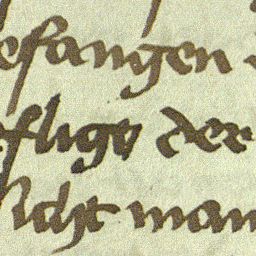 efangen
eflige der
licht man